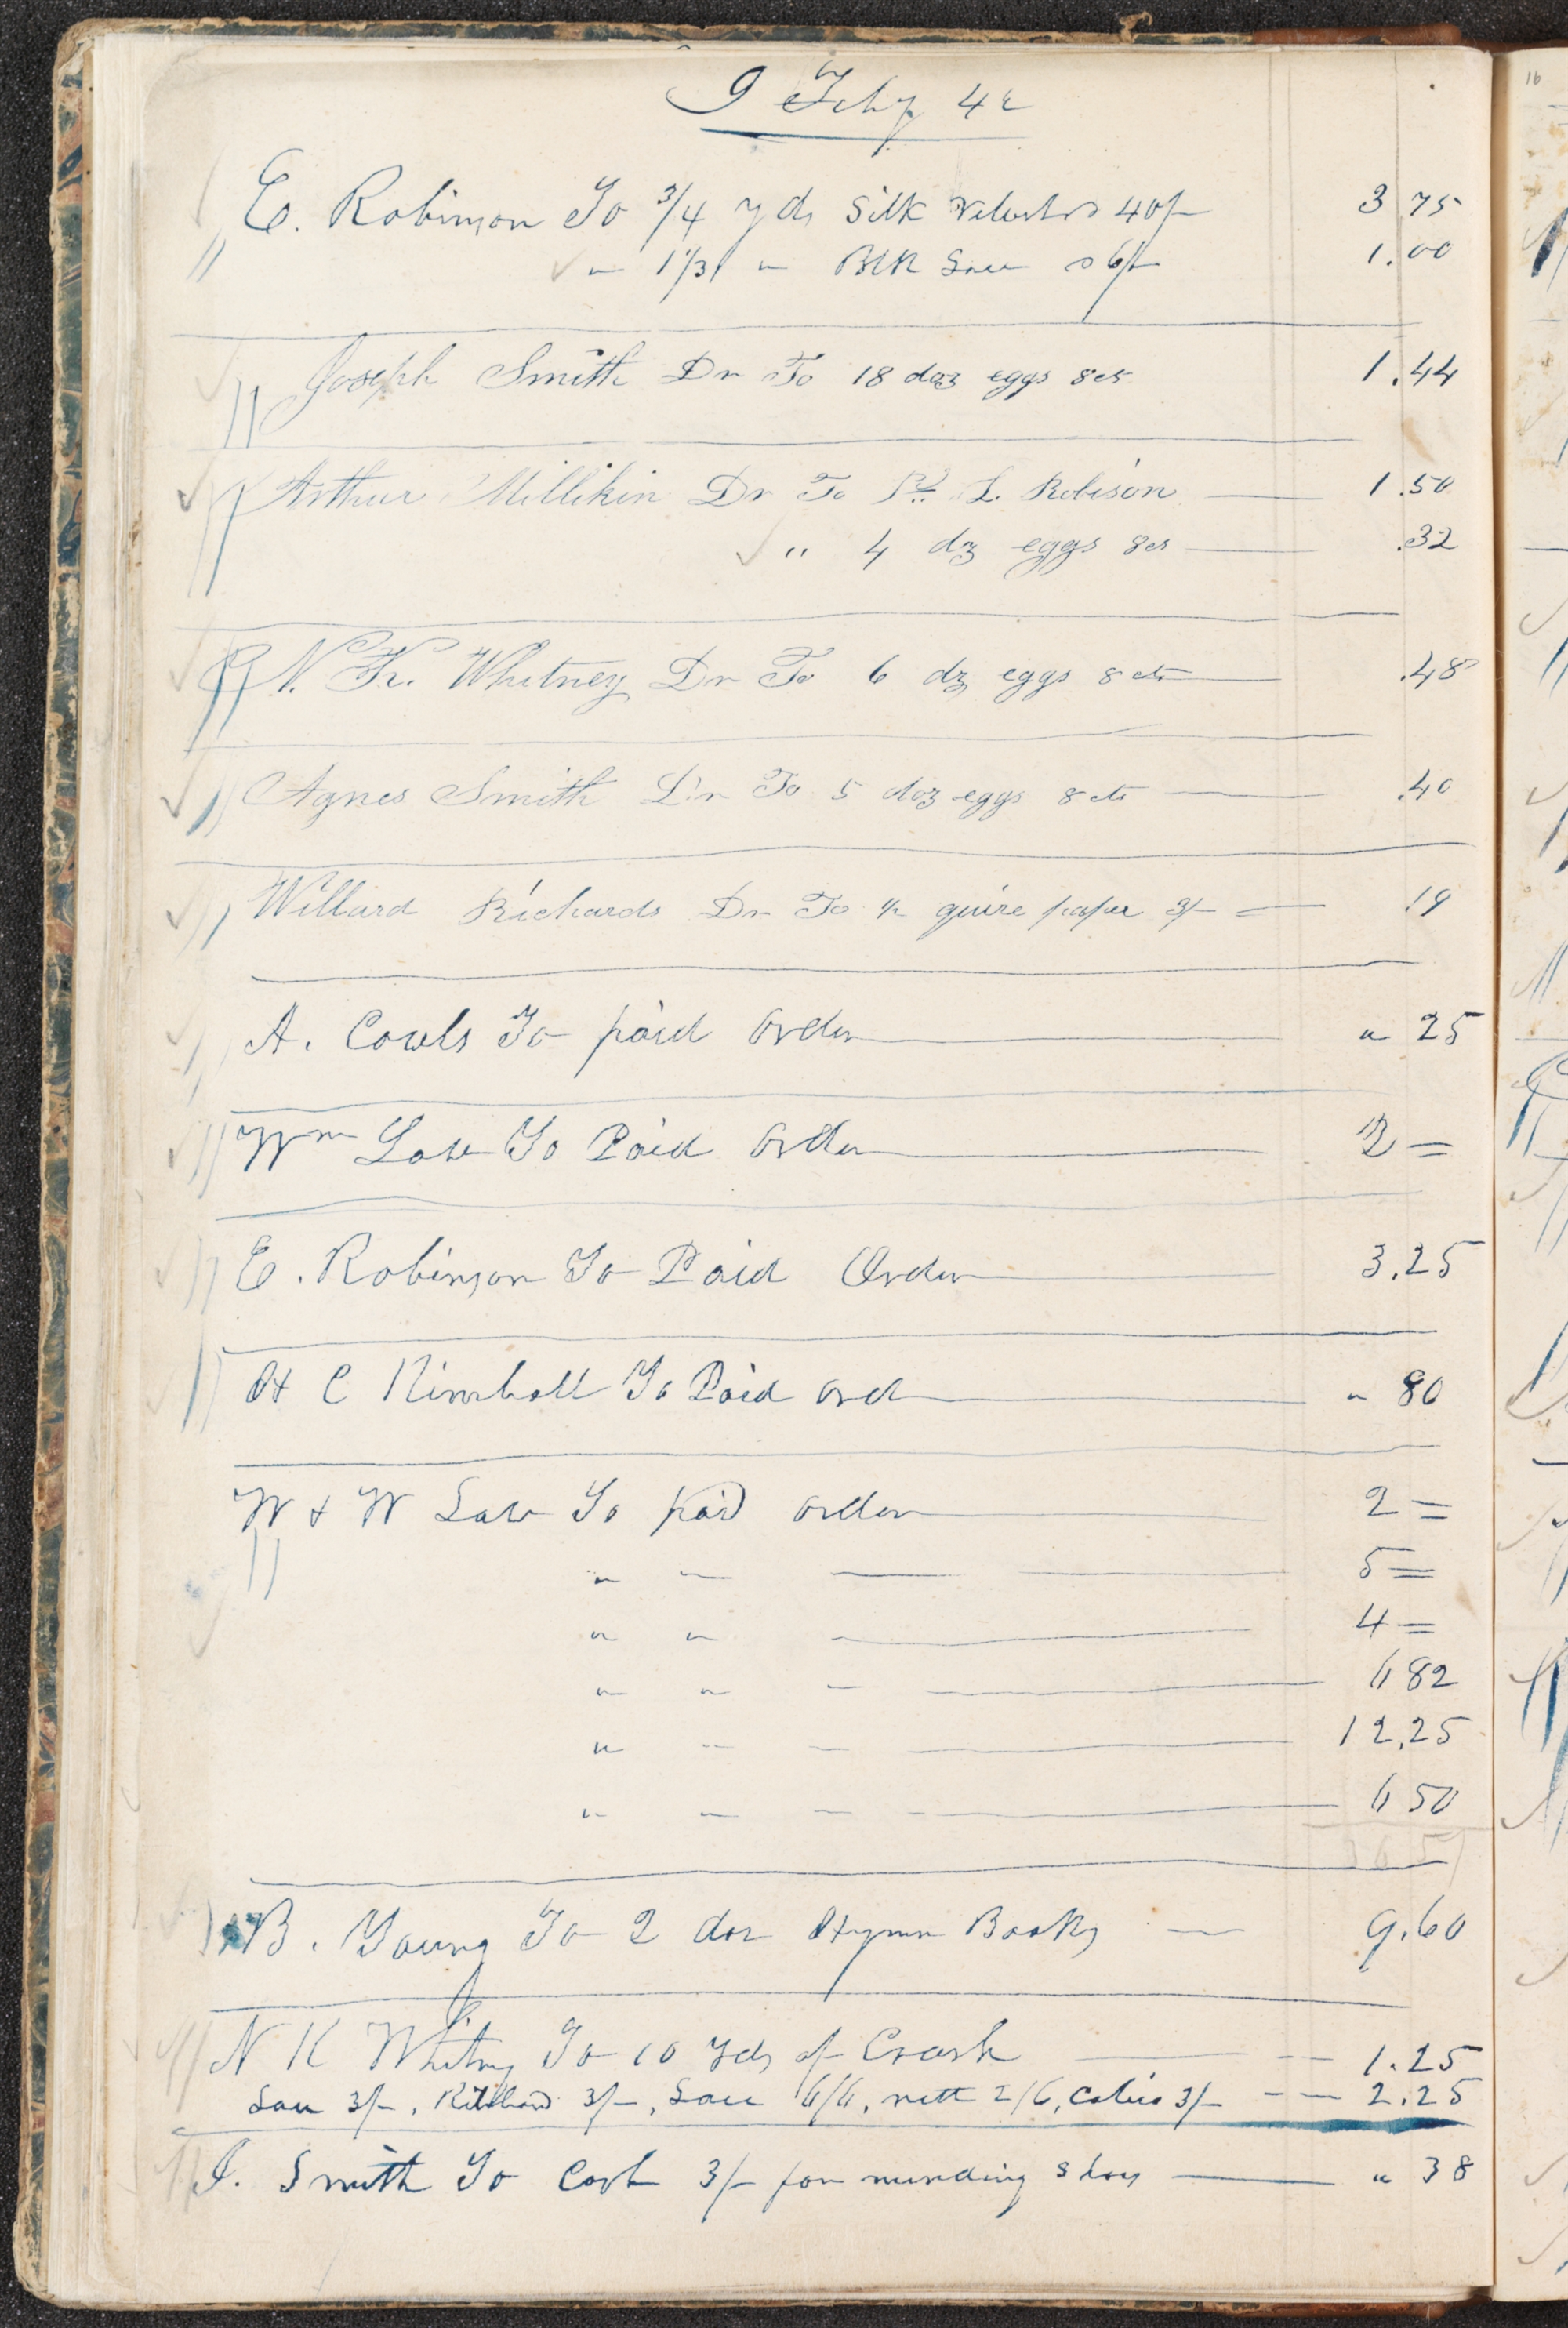 9 Feby 42
E. Robinson To 3/4 yds Silk Velvet @ 40/- 3 75
" 1 1/3 " Blk Lace @ 6/- 1.00
Joseph Smith Dr To 18 doz eggs 8cts 1.44
Arthur Millikin Dr To Pd L. Robison 1.50
" 4 dz eggs 8cts .32
N. K. Whitney Dr To 6 dz eggs 8 cts .48
Agnes Smith Dr To 5 doz eggs 8 cts .40
Willard Richards Dr To 1/2 quire paper 3/- .19
A. Cowls To paid order " 25
Wm Law To Paid order 2 =
E. Robinson To Paid Order 3.25
H C Kimball To Paid ord " 80
W & W Law To paid order 2 =
" " 5 =
" " 4 =
" " " 6 82
" " " 12.25
" " " " 6 50
36 57
B. Young To 2 doz Hymn Books 9.60
N K Whitney To 10 Yds of Crash 1.25
Lace 3/-, Ribband 3/-, Lace 6/6, nett 2/6, Calico 3/- 2.25
J. Smith To Cash 3/- for mending shoes " 38
16